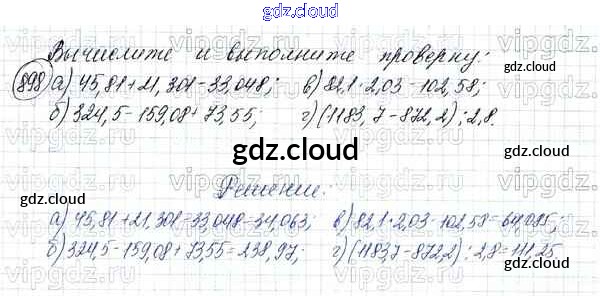 gdz.cloud
Вычислите и выполните проверку:
898 а) 45,81+21,301-33,048; в) 82,1·2,03-102,58;
б) 324,5-159,08+73,55; г) (1183,7-872,2):2,8.
gdz.cloud
Решение:
а) 45,81+21,301-33,048=34,063; в) 82,1·2,03-102,58=64,085;
б) 324,5-159,08+73,55=238,97; г) (1183,7-872,2):2,8=111,25
gdz.cloud